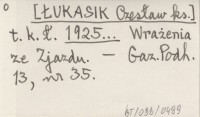 [ŁUKASIK Czesław ks.]
t. k. Ł. 1925... Wrażenia
ze Zjazdu. — Gaz. Podh.
13, nr 35.